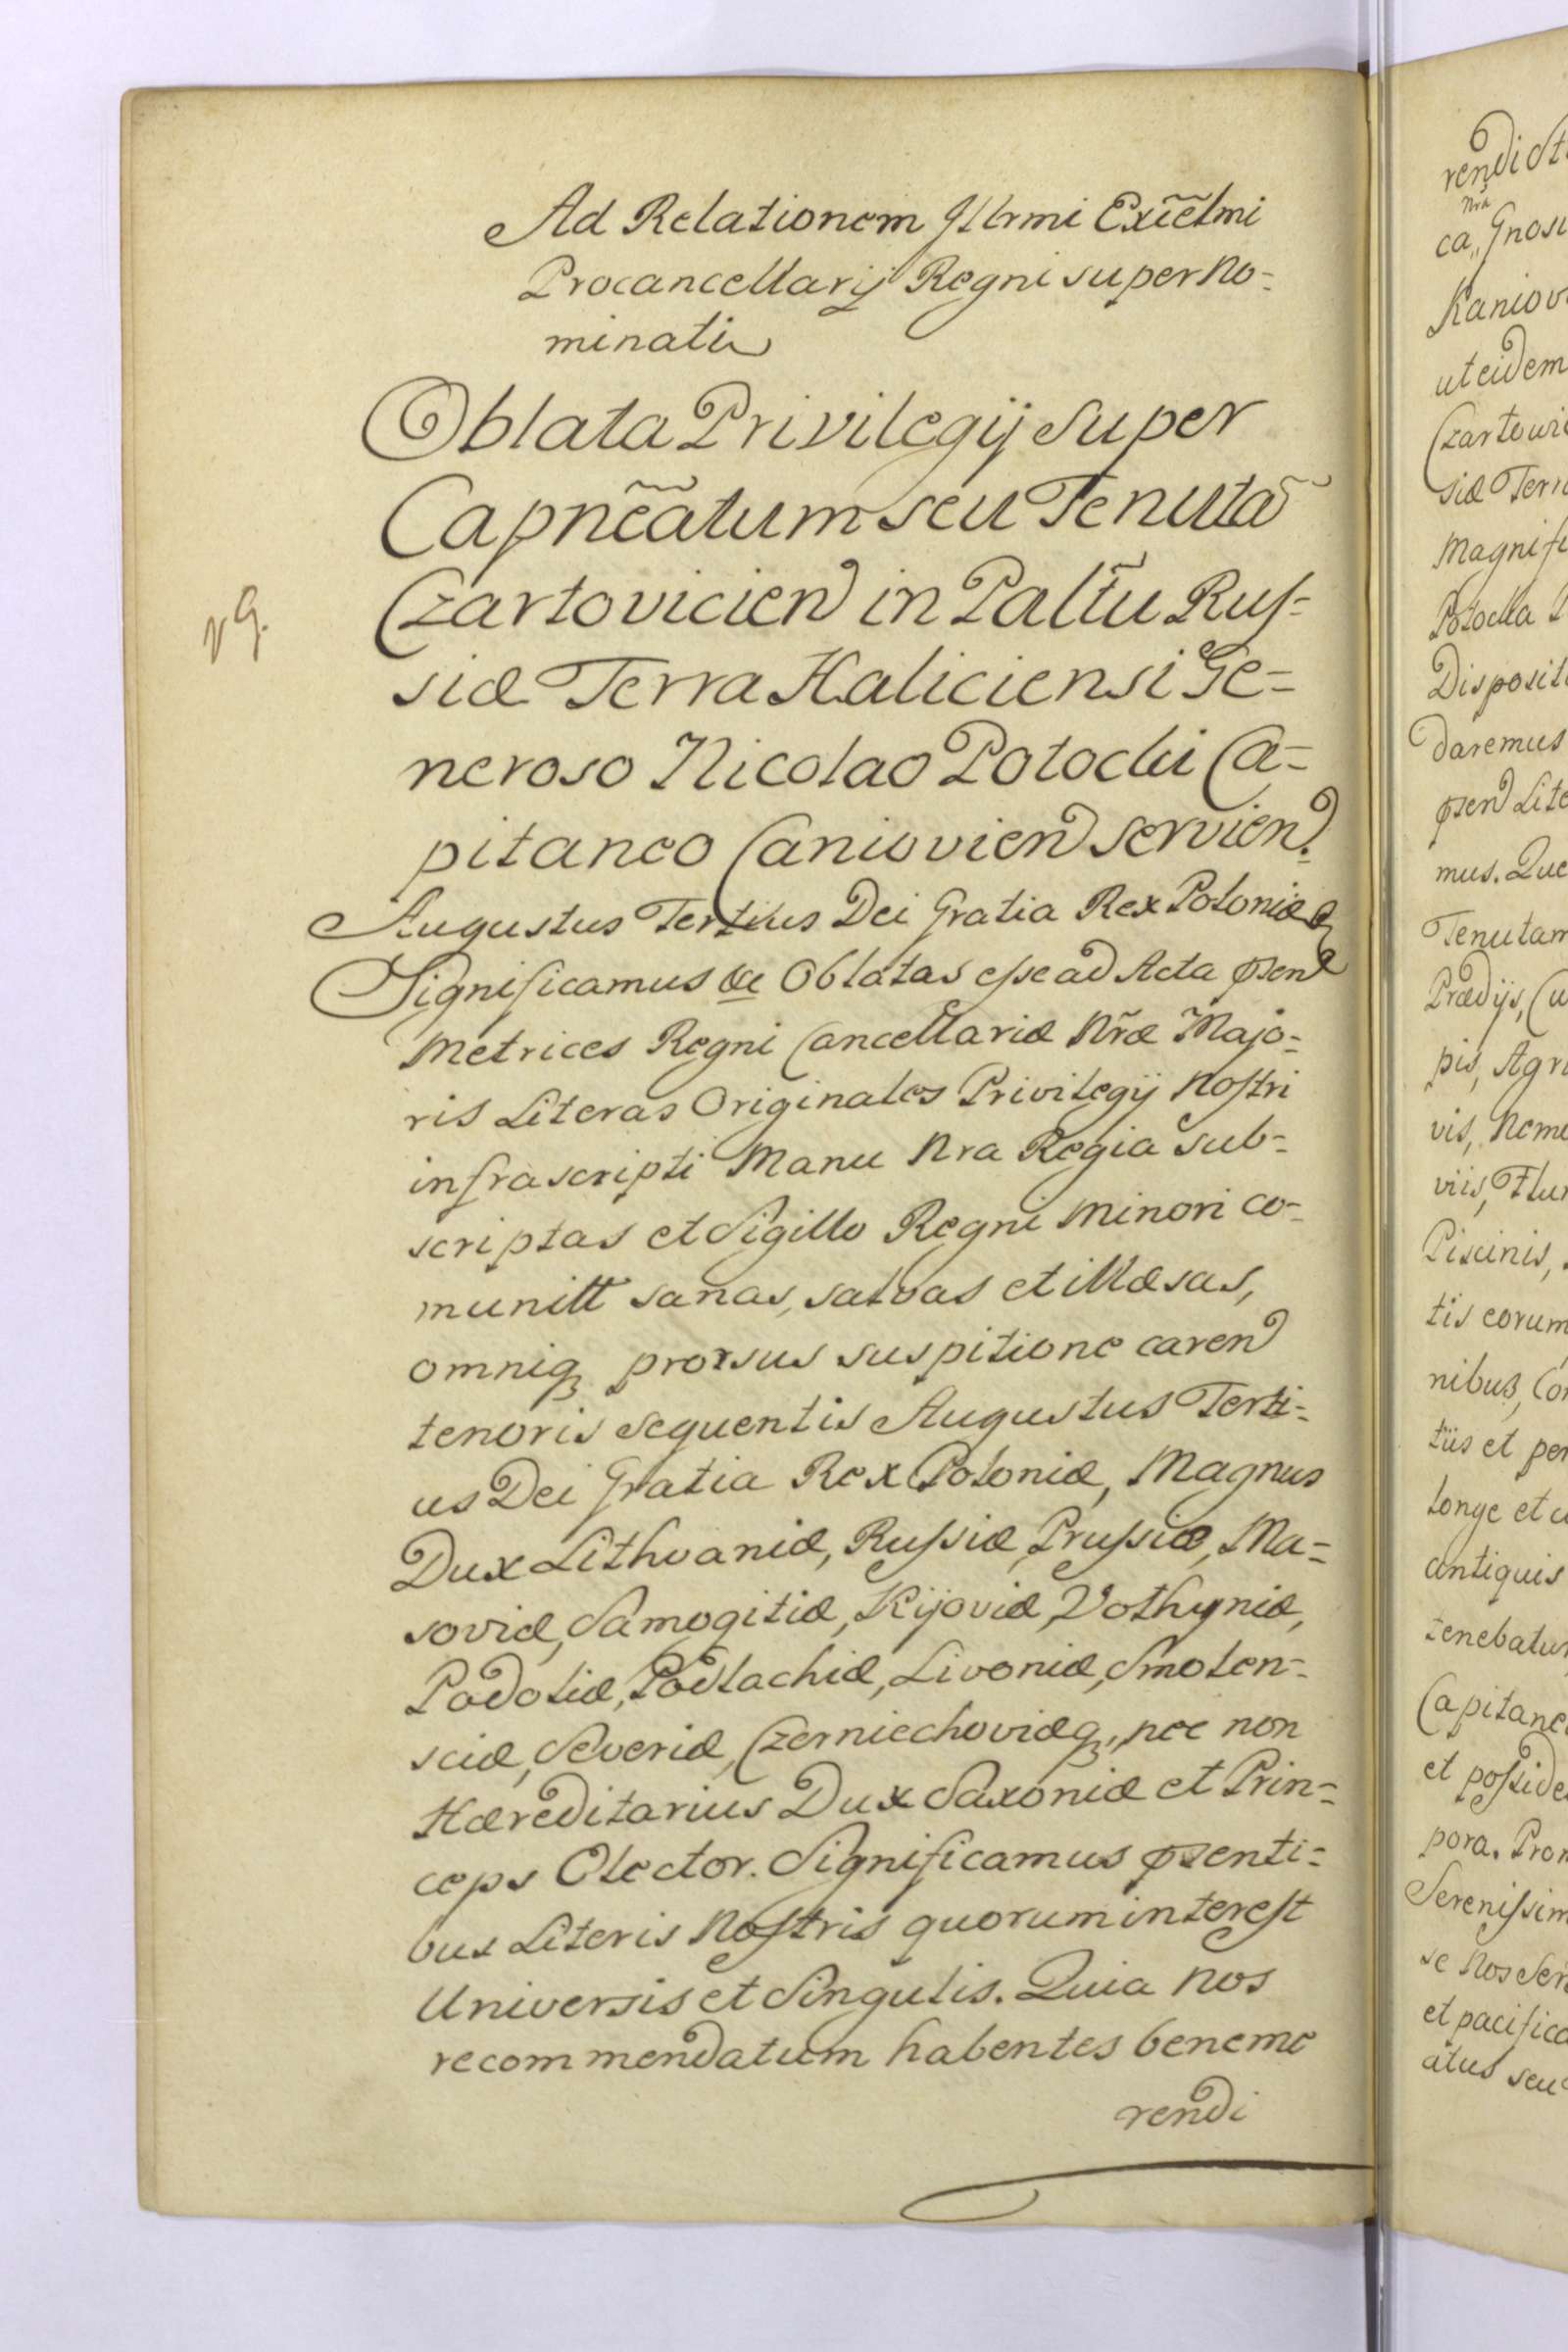 Ad Relationem Illrmi Excẽlmi
Procancellarij Regni super no-
minati
Oblata Privilegij super
Capnẽatum seu Tenutã
Czartovicien in Paltũ Rus-
siæ Terra Haliciensi Ge-
neroso Nicolao Potocki Ca-
pitaneo Caniovien servien.
Augustus Tertius Dei Gratia Rex Poloniæ &
Significamus &c Oblatas esse ad Acta pñsen
Metrices Regni Cancellariæ Nrãe Majo-
ris Literas Originales Privilegij Nostri
infrascripti Manu Nra Regia sub-
scriptas et Sigillo Regni Minori co-
munitt sanas, salvas et illæsas,
omniq prorsus suspitione caren
tenoris sequentis Augustus Terti-
us Dei Gratia Rex Poloniæ, Magnus
Dux Lithvaniæ, Russiæ, Prussiæ, Ma-
soviæ, Samogitiæ, Kijoviæ, Volhyniæ,
Podoliæ, Podlachiæ, Livoniæ, Smolen-
sciæ, Severiæ, Czerniechoviæq, nec non
Hæreditarius Dux Saxoniæ et Prin-
ceps Elector. Significamus pñsenti-
bus Literis Nostris quorum interest
Universis et Singulis. Quia Nos
recommendatum habentes beneme
rendi
vg.
ca, Gnosi
nra
Kaniov
ut eidem
Czartovi
siæ Terr
Magnifi
Potocka
Disposit
daremus
Lite
mus. Que
Tenutam
Prædijs, Cu
pis, Agri
vis, Neme
viis, Flu
Piscinis,
tis eorum
nibus, Co
tiis et per
longe et
antiquis
tenebatur
Capitane
et posside
pora. Pro
Serenissim
se Nos Ser
et pacifica
atus seu